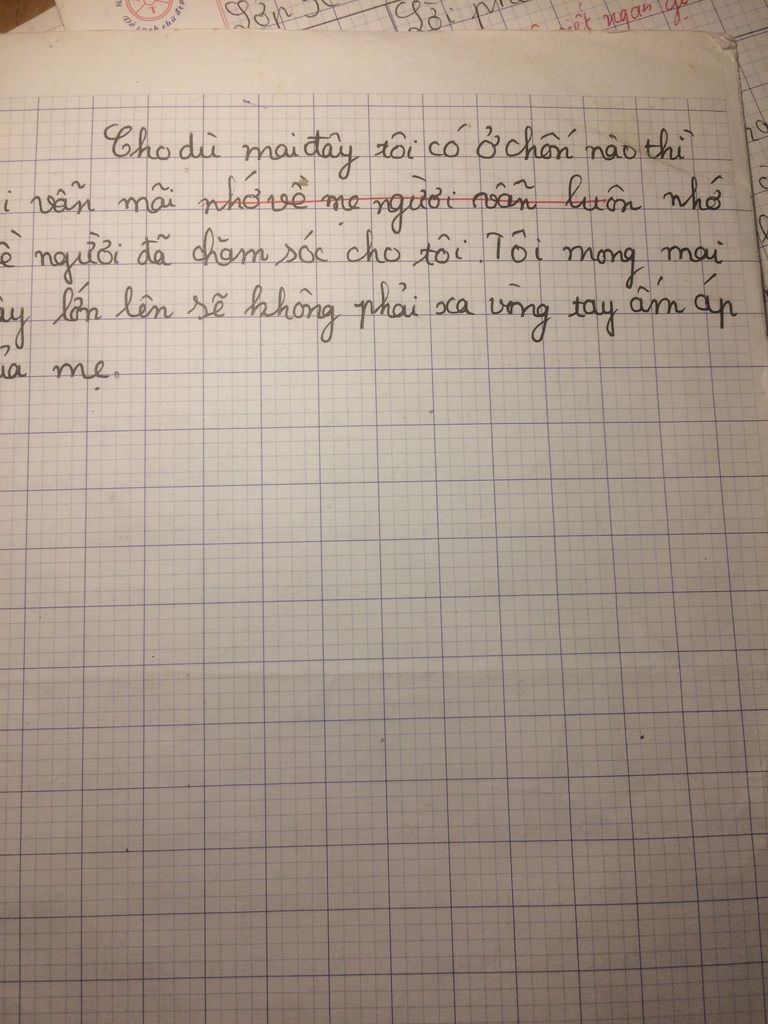 Lớp
Lời
ngan
Cho dù mai đây tôi có ở chốn nào thì
i vẫn mãi nhớ về mẹ người vẫn luôn nhớ
ề người đã chăm sóc cho tôi. Tôi mong mai
ây lớn lên sẽ không phải xa vòng tay ấm áp
ủa mẹ.